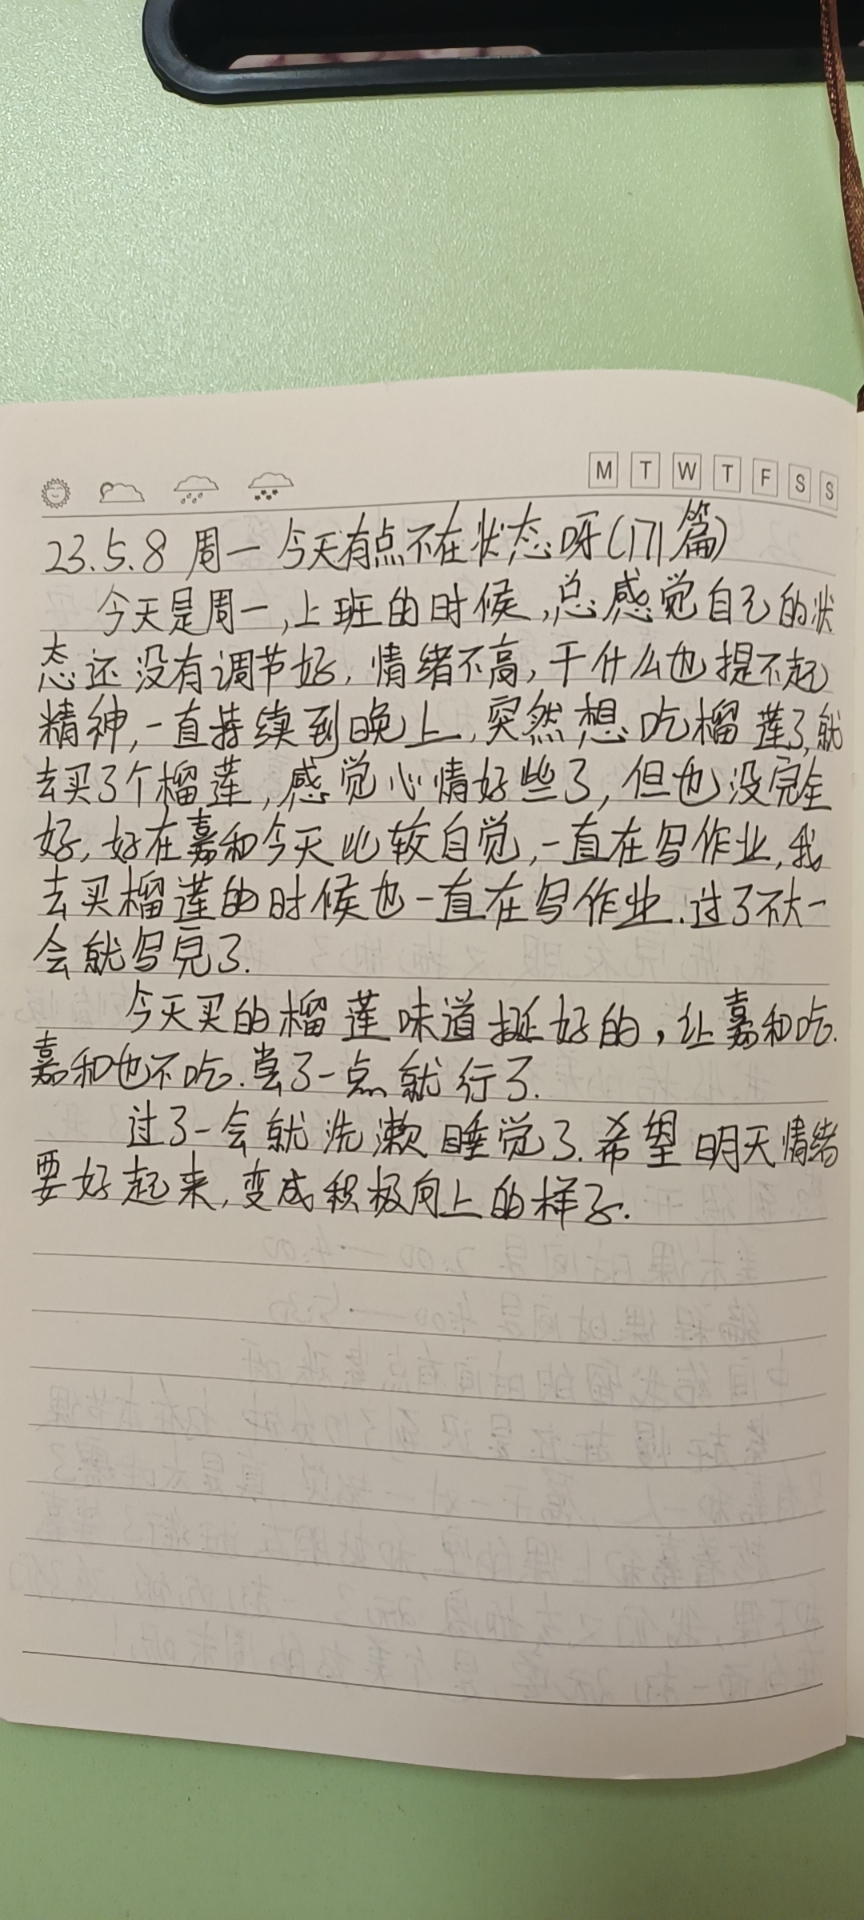 M T W T F S S
23.5.8 周一 今天有点不在状态呀(171篇)
今天是周一,上班的时候,总感觉自己的状
态还没有调节好,情绪不高,干什么也提不起
精神,一直持续到晚上,突然想吃榴莲了,就
去买了个榴莲,感觉心情好些了,但也没完全
好,好在嘉和今天比较自觉,一直在写作业,我
去买榴莲的时候也一直在写作业.过了不大一
会就写完了.
今天买的榴莲味道挺好的,让嘉和吃.
嘉和也不吃.尝了一点就行了.
过了一会就洗漱睡觉了.希望明天情绪
要好起来,变成积极向上的样子.